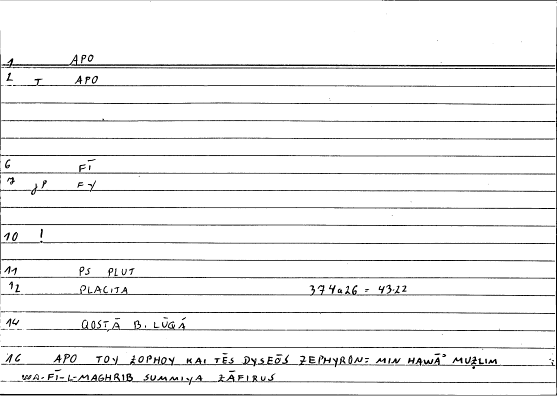 1 APO
2 T APO
6 FĪ
7 gP FY
10 !
11 PS PLUT
12 PLACITA 374a26 = 43.22
14 QOSṬĀ B. LŪQĀ
16 APO TOY ZOPHOY KAI TĒS DYSEŌS ZEPHYRON: MIN HAWĀʾ MUẒLIM
WA-FĪ-L-MAGHRIB SUMMIYA ZĀFIRUS